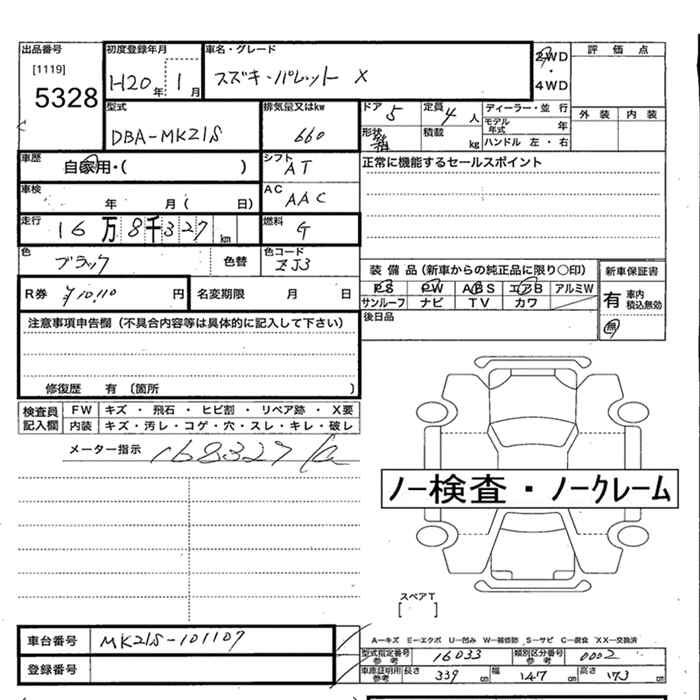 出品番号 初度登録年月 車名・グレード 2WD 評価点
[1119] H20 年 1 月 スズキ・パレット X ・
5328 4WD
型式 排気量又はkw ドア 5 定員 4 人 ディーラー・並 行 外装 内装
DBA-MK21S 660 形状 積載 kg モデル年式 年
ハンドル 左・右
車歴 自家用・( ) シフト AT 正常に機能するセールスポイント
車検 年 月 ( 日) AC AAC
走行 16 万 8 千 327 km 燃料 G
色 ブラック 色替 色コード ZJ3
装備品 (新車からの純正品に限り○印) 新車保証書
R券 ¥10,110 円 名変期限 月 日 PS PW ABS エアB アルミW 有 車内積込無効
サンルーフ ナビ TV カワ 無
注意事項申告欄 (不具合内容等は具体的に記入して下さい) 後日品
修復歴 有 〔箇所 〕
検査員記入欄 FW キズ・飛石・ヒビ割・リペア跡・X要
内装 キズ・汚レ・コゲ・穴・スレ・キレ・破レ
メーター指示 168327
ノー検査・ノークレーム
スペアT
[ ]
車台番号 MK21S-101107
登録番号
A―キズ E―エクボ U―凹み W―補修跡 S―サビ C―腐食 XX―交換済
型式指定番号 参考 16033 類別区分番号 参考 0002
車庫証明用 参考 長さ 339 cm 幅 147 cm 高さ 173 cm